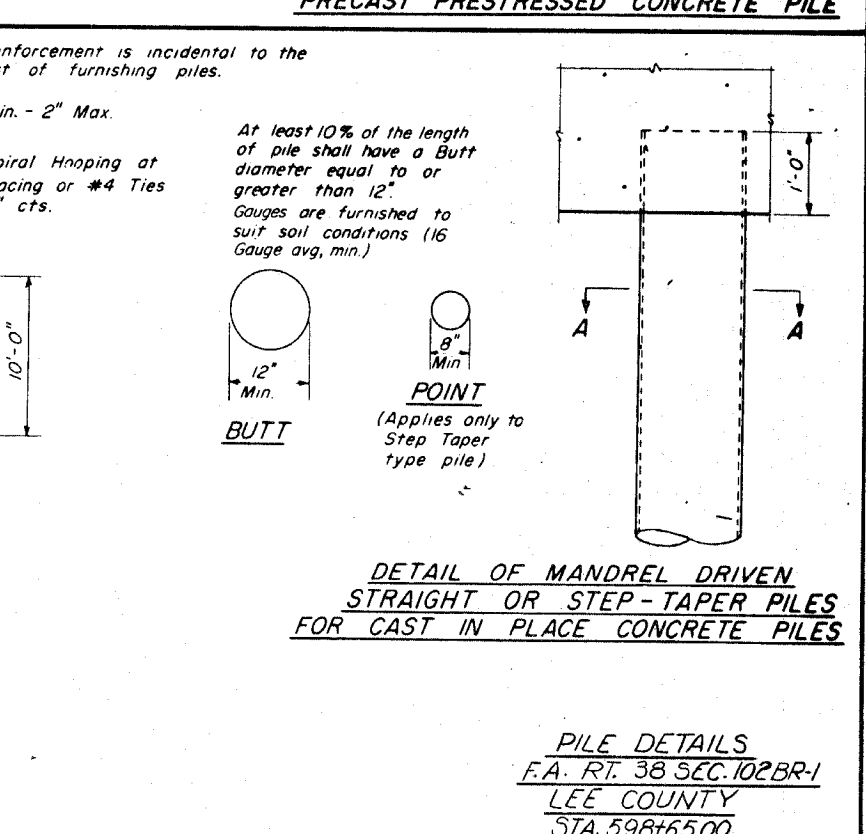 PRECAST PRESTRESSED CONCRETE PILE
nforcement is incidental to the
t of furnishing piles.
in. - 2" Max.
piral Hooping at
acing or #4 Ties
" cts.
10'-0"
At least 10% of the length
of pile shall have a Butt
diameter equal to or
greater than 12".
Gauges are furnished to
suit soil conditions (16
Gauge avg, min.)
12"
Min.
BUTT
8"
Min
POINT
(Applies only to
Step Taper
type pile)
1'-0"
A
A
DETAIL OF MANDREL DRIVEN
STRAIGHT OR STEP-TAPER PILES
FOR CAST IN PLACE CONCRETE PILES
PILE DETAILS
F.A. RT. 38 SEC. 102BR-1
LEE COUNTY
STA. 598+65.00